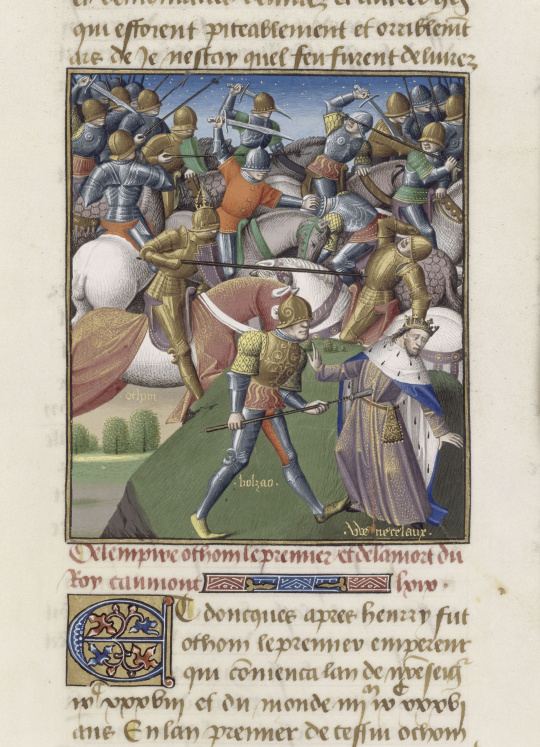 qui essoient piteablement et orriblemt
ars de Je nesçay quel feu furent deliurez
othon
bolzao.
Venceslaux.
De lempire othom le premier et de la mort du
Roy caumont lxiv.
Et doncques apres henrry fut
othom le premier empereur
qui comenca lan de
et du monde
ans En lan premier de cestui othom